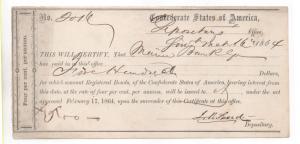 No. 
Confederate States of America,
Depository Office,
March 16 1864
THIS WILL CERTIFY, That
has paid in at this office
Five Hundred Dollars,
for which amount Registered Bonds, of the Confederate States of America, bearing interest from
this date, at the rate of four per cent. per annum, will be issued to under the act
approved February 17, 1864, upon the surrender of this Certificate at this office.
$500
Depositary.
Four per cent. per annum.